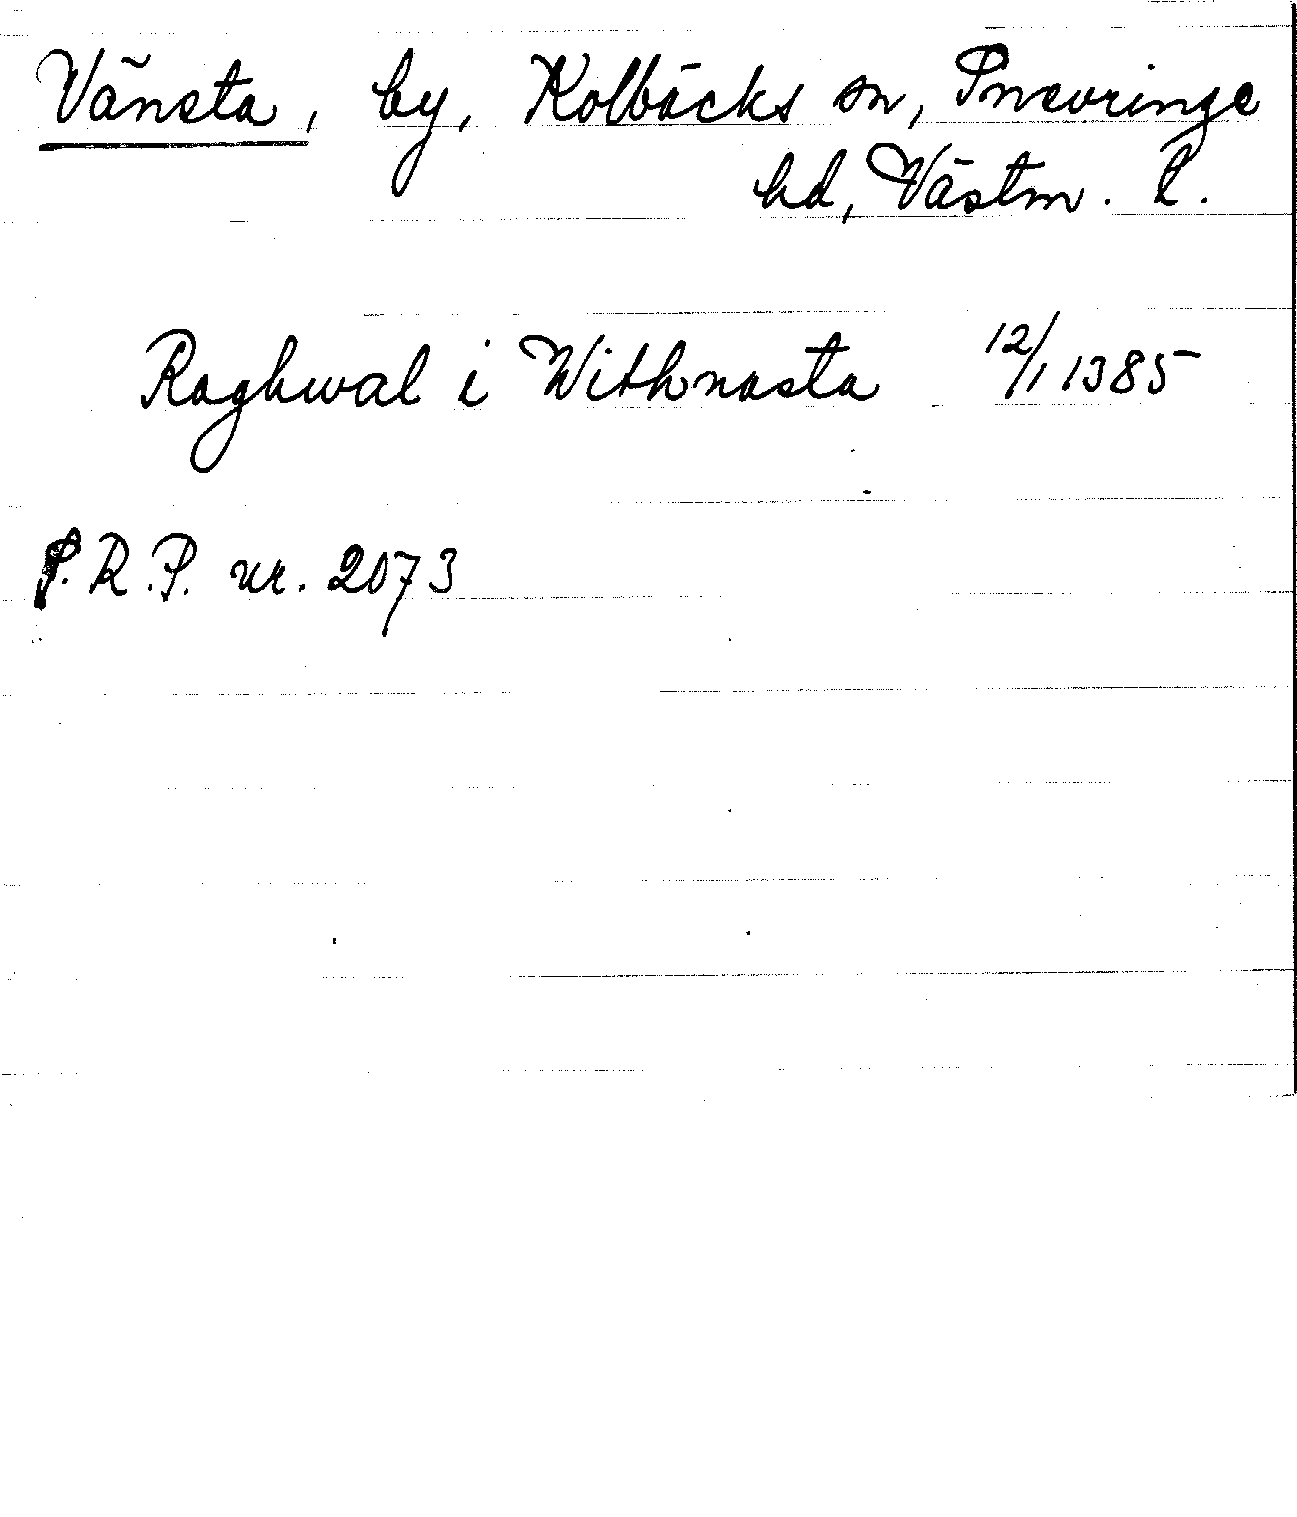 Vänsta, by, Kolbäcks sn, Snevringe
hd, Västm. l.
Raghwal i Withnasta 12/1 1385
S.R.P. nr. 2073